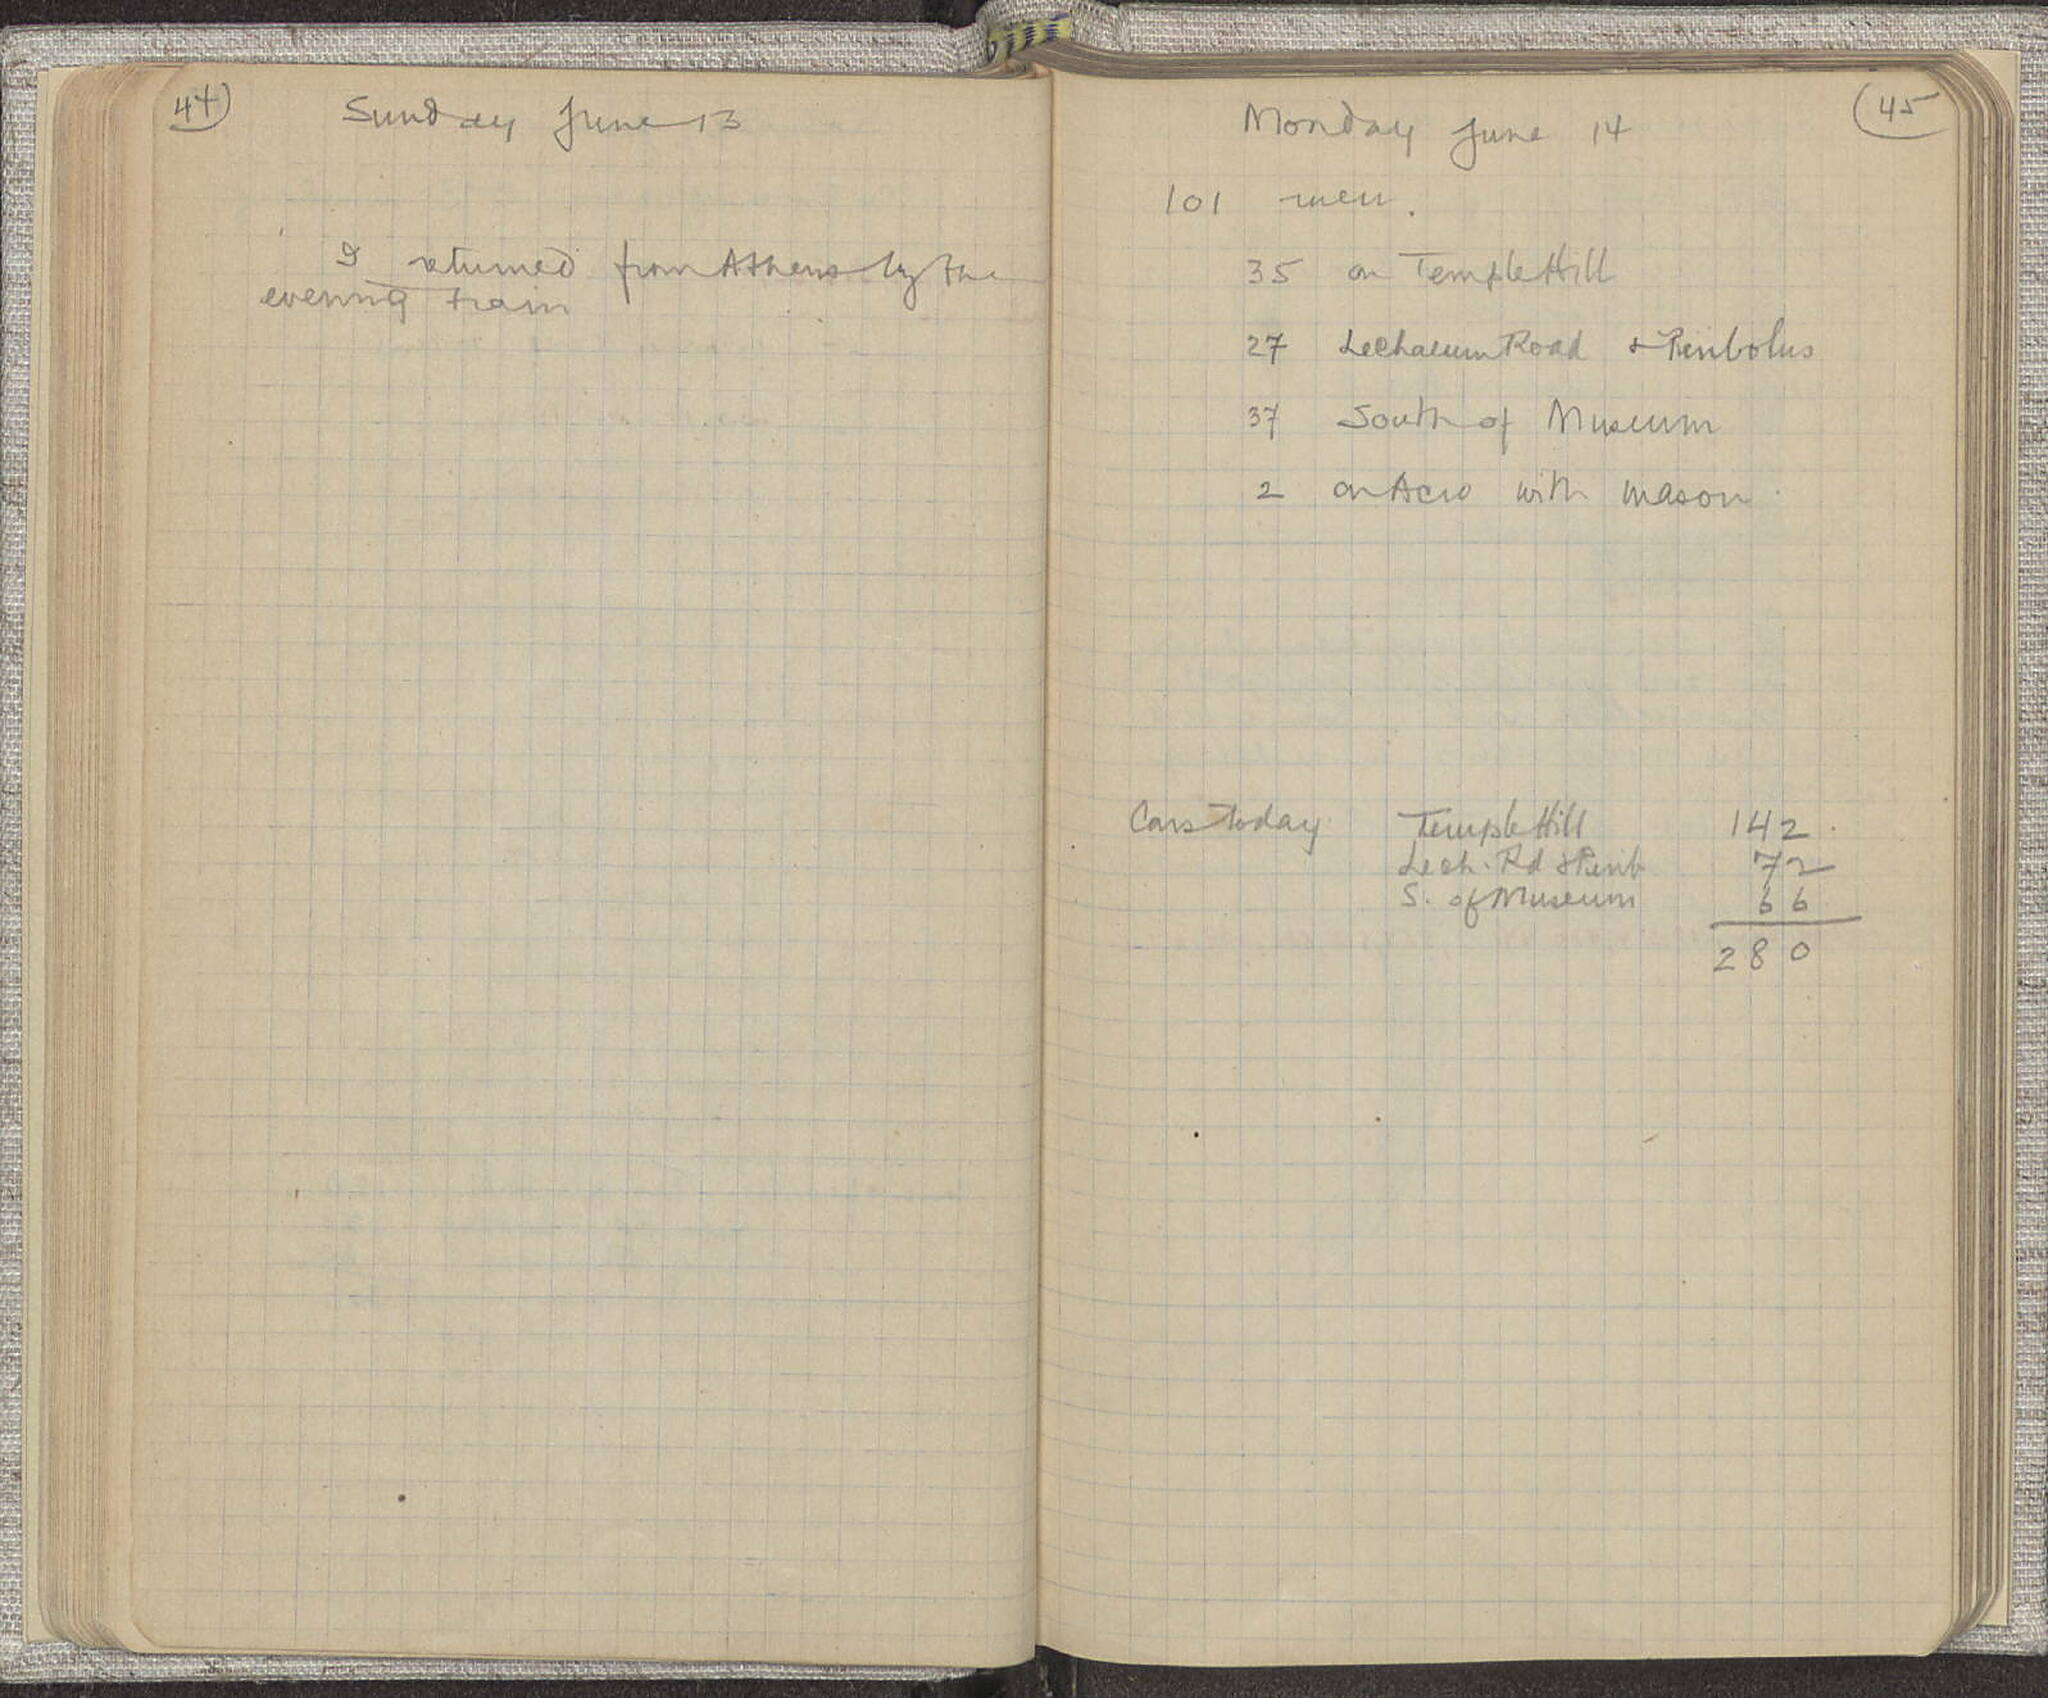 44
Sunday June 13
I returned from Athens by the
evening train
45
Monday June 14
101 men.
35 on Temple Hill
27 Lechaeum Road & Peribolus
37 South of Museum
2 on Acro with mason.
Cars today Temple Hill 142.
Lech. Rd & Perib 72
S. of Museum 66
280